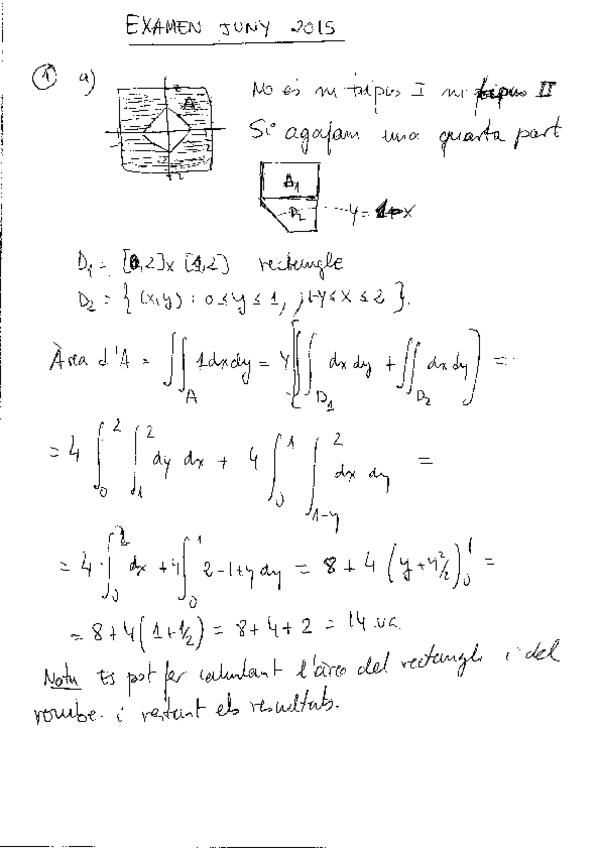 EXAMEN JUNY 2015
① a) No és ni tipus I ni tipus II
2
A
Si agafam una quarta part
2
D₁
D₂ y = 1-x
D₁ = [0,2] x [1,2] rectangle
D₂ = { (x,y) : 0 ≤ y ≤ 1, 1-y ≤ x ≤ 2 }.
Àrea d'A = ∬_A 1dxdy = 4 [ ∬_D₁ dx dy + ∬_D₂ dx dy ] =
= 4 ∫₀² ∫₁² dy dx + 4 ∫₀¹ ∫_{1-y}² dx dy =
= 4 · ∫₀² dx + 4 ∫₀¹ 2-1+y dy = 8 + 4 (y + y²/2)₀¹ =
= 8 + 4 (1 + 1/2) = 8 + 4 + 2 = 14 ua.
Nota Es pot fer calculant l'àrea del rectangle i del
rombe i restant els resultats.